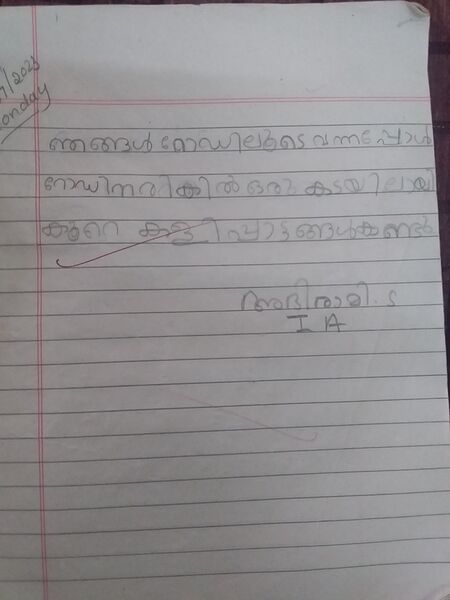 /2023
Monday
ഞങ്ങൾ റോഡിലൂടെ വന്നപ്പോൾ
റോഡിനരികിൽ ഒരു കടയിലായി
കുറെ കളിപ്പാട്ടങ്ങൾ കണ്ടു
അഭിരാമി. S
I A